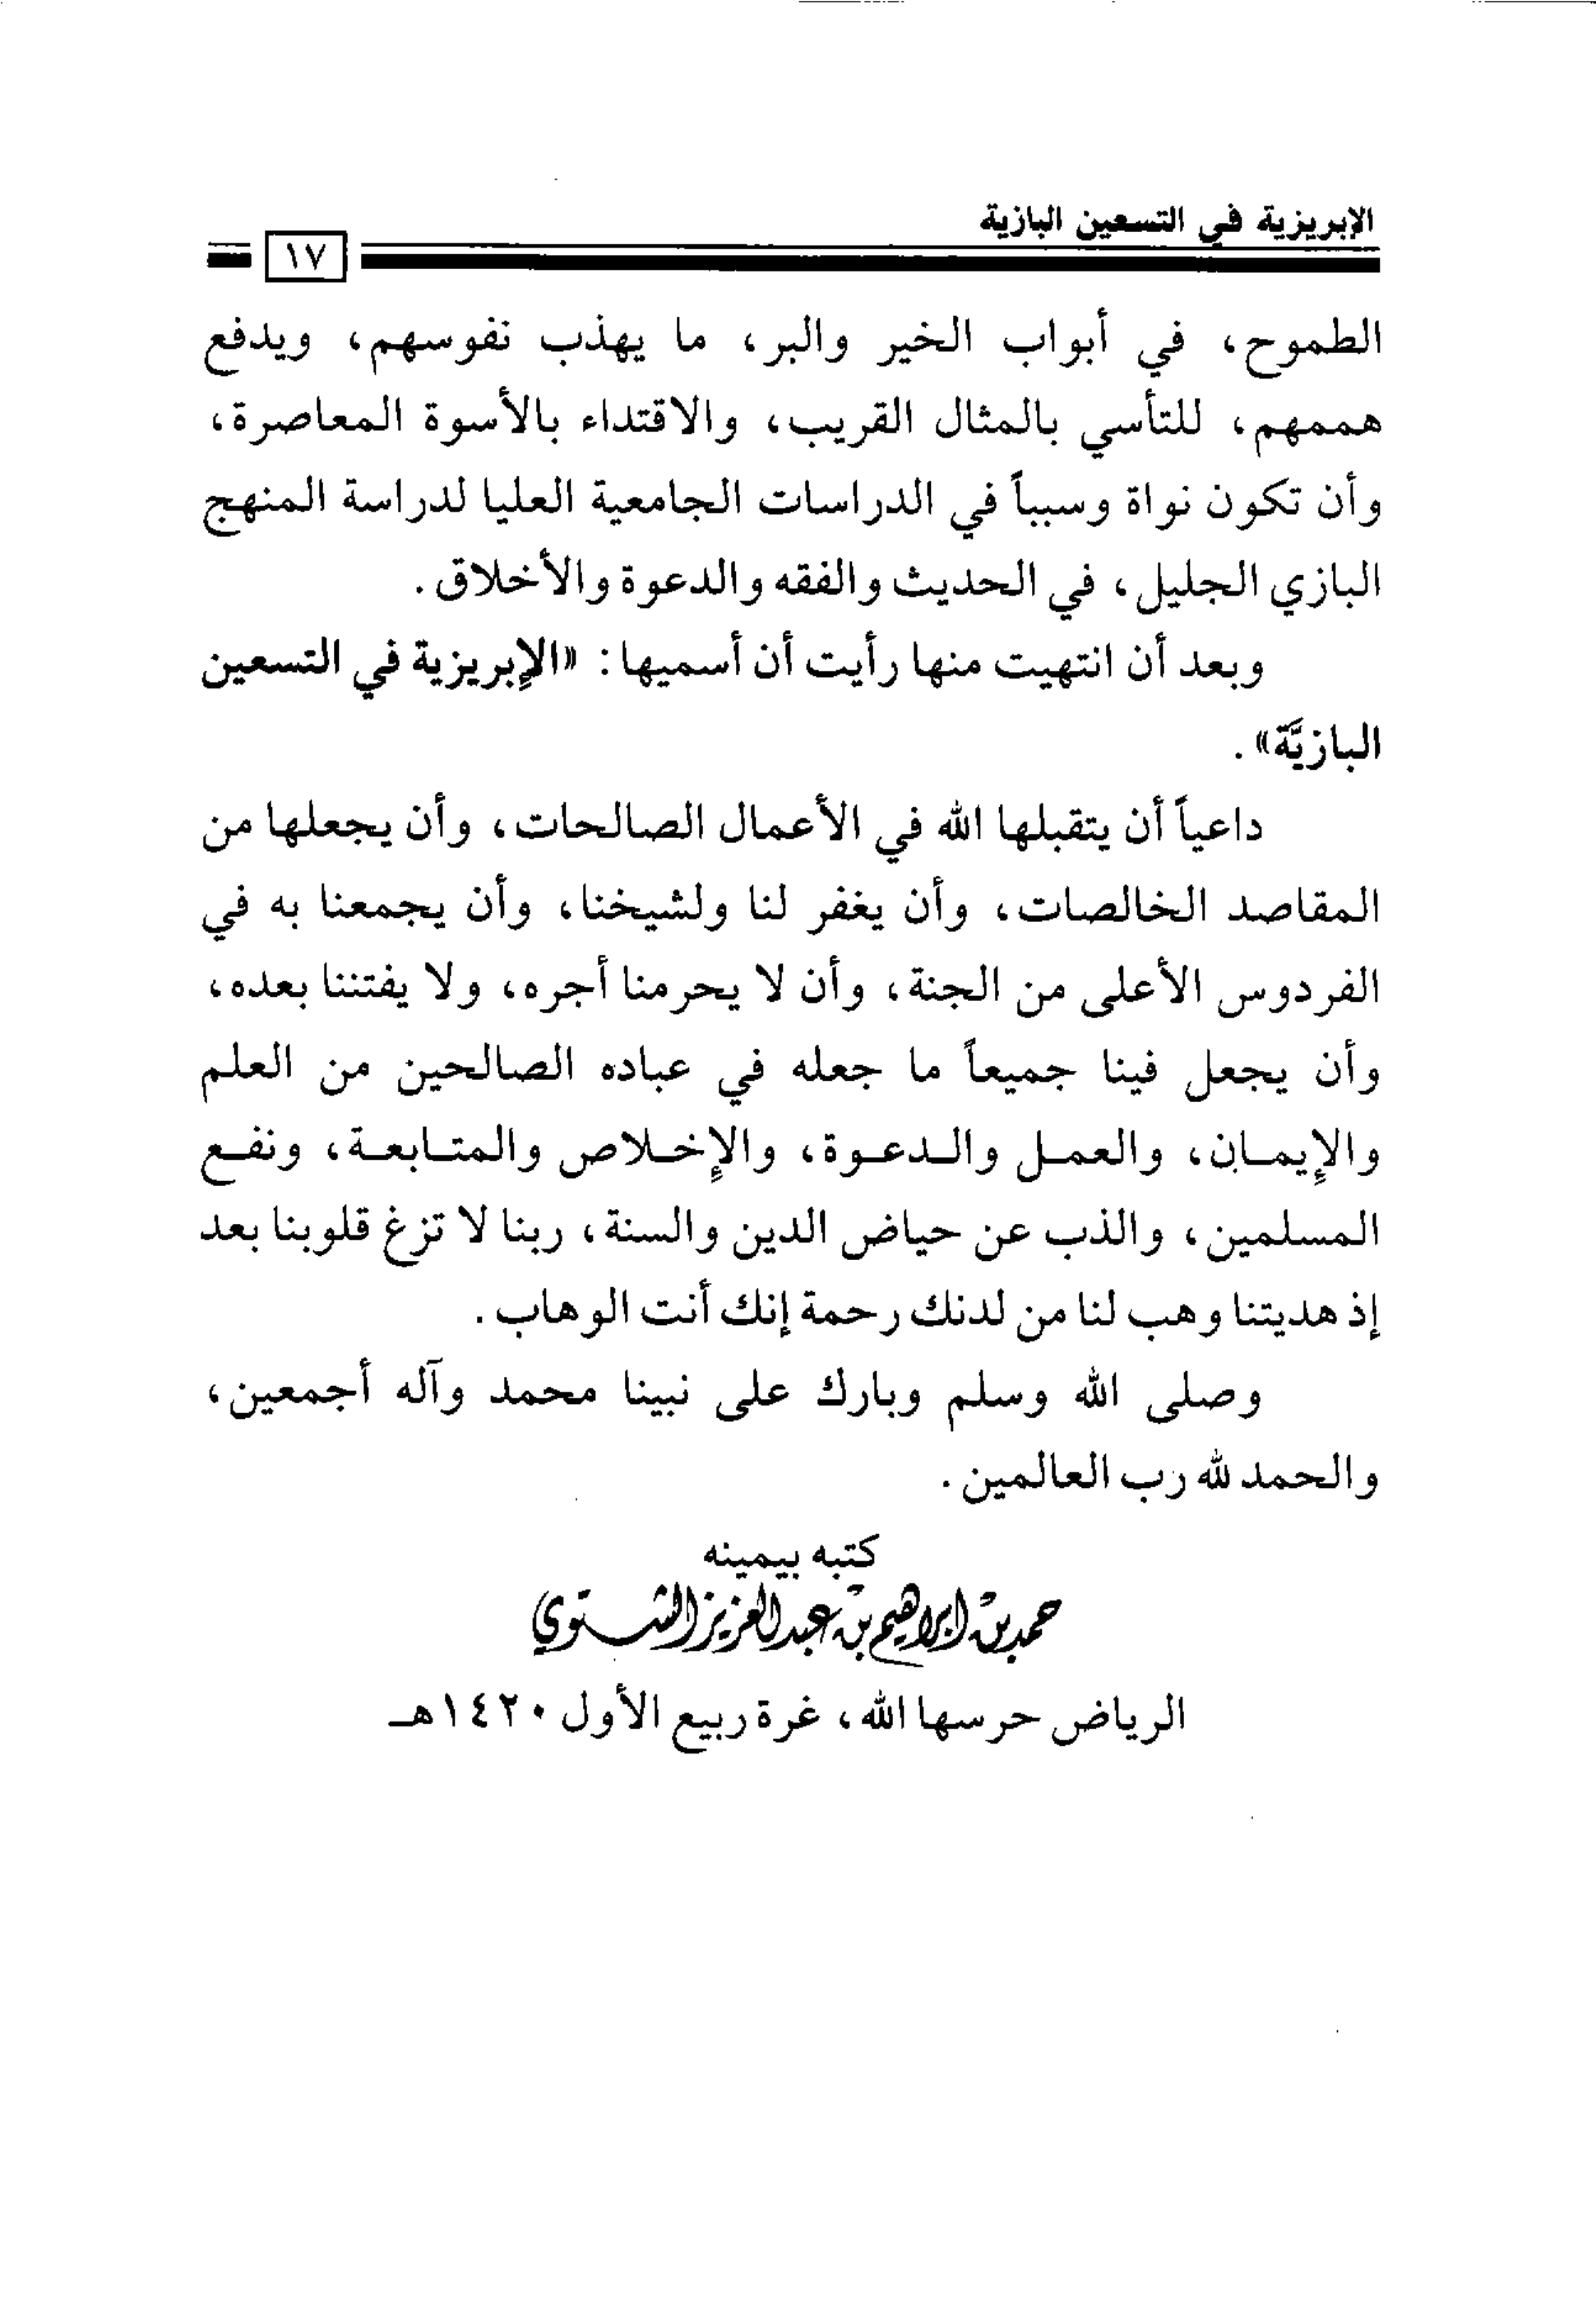 الإبريزية في التسعين البازية
١٧
الطموح، في أبواب الخير والبر، ما يهذب نفوسهم، ويدفع
هممهم، للتأسي بالمثال القريب، والاقتداء بالأسوة المعاصرة،
وأن تكون نواة وسبباً في الدراسات الجامعية العليا لدراسة المنهج
البازي الجليل، في الحديث والفقه والدعوة والأخلاق.
وبعد أن انتهيت منها رأيت أن أسميها: «الإبريزية في التسعين
البازيَّة».
داعياً أن يتقبلها الله في الأعمال الصالحات، وأن يجعلها من
المقاصد الخالصات، وأن يغفر لنا ولشيخنا، وأن يجمعنا به في
الفردوس الأعلى من الجنة، وأن لا يحرمنا أجره، ولا يفتننا بعده،
وأن يجعل فينا جميعاً ما جعله في عباده الصالحين من العلم
والإيمان، والعمل والدعوة، والإخلاص والمتابعة، ونفع
المسلمين، والذب عن حياض الدين والسنة، ربنا لا تزغ قلوبنا بعد
إذ هديتنا وهب لنا من لدنك رحمة إنك أنت الوهاب.
وصلى الله وسلم وبارك على نبينا محمد وآله أجمعين،
والحمد لله رب العالمين.
كتبه بيمينه
حمد بن إبراهيم بن عبد العزيز الشتوي
الرياض حرسها الله، غرة ربيع الأول ١٤٢٠هـ